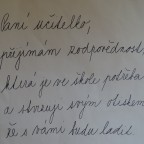 Paní učitelko,
přijímám zodpovědnost,
která je ve škole potřeba
a stvrzuji svým otiskem
že s vámi budu ladit